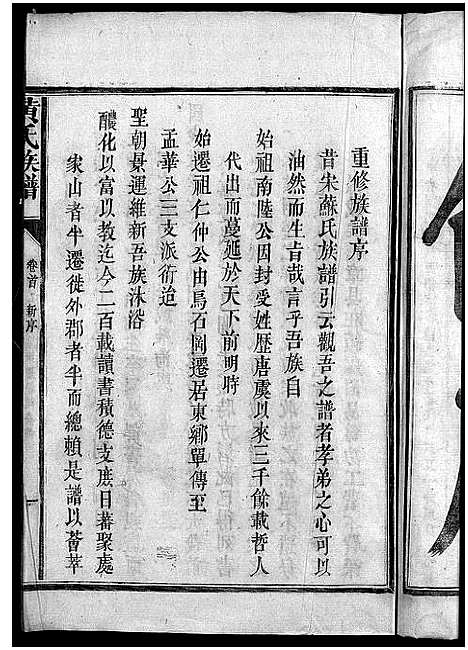 重修族譜序
昔宋蘇氏族譜引云觀吾之譜者孝弟之心可以
油然而生旨哉言乎吾族自
始祖南陸公因封受姓歴唐虞以來三千餘載哲人
代出而蔓延於天下前明時
始遷祖仁仲公由烏石岡遷居東鄉單傳至
孟華公三支派衍迨
聖朝景運維新吾族沐浴
醲化以富以教迄今二百載讀書積德支庶日蕃聚處
家山者半遷徙外郡者半而總賴是譜以薈萃
黃氏族譜
卷首
新序